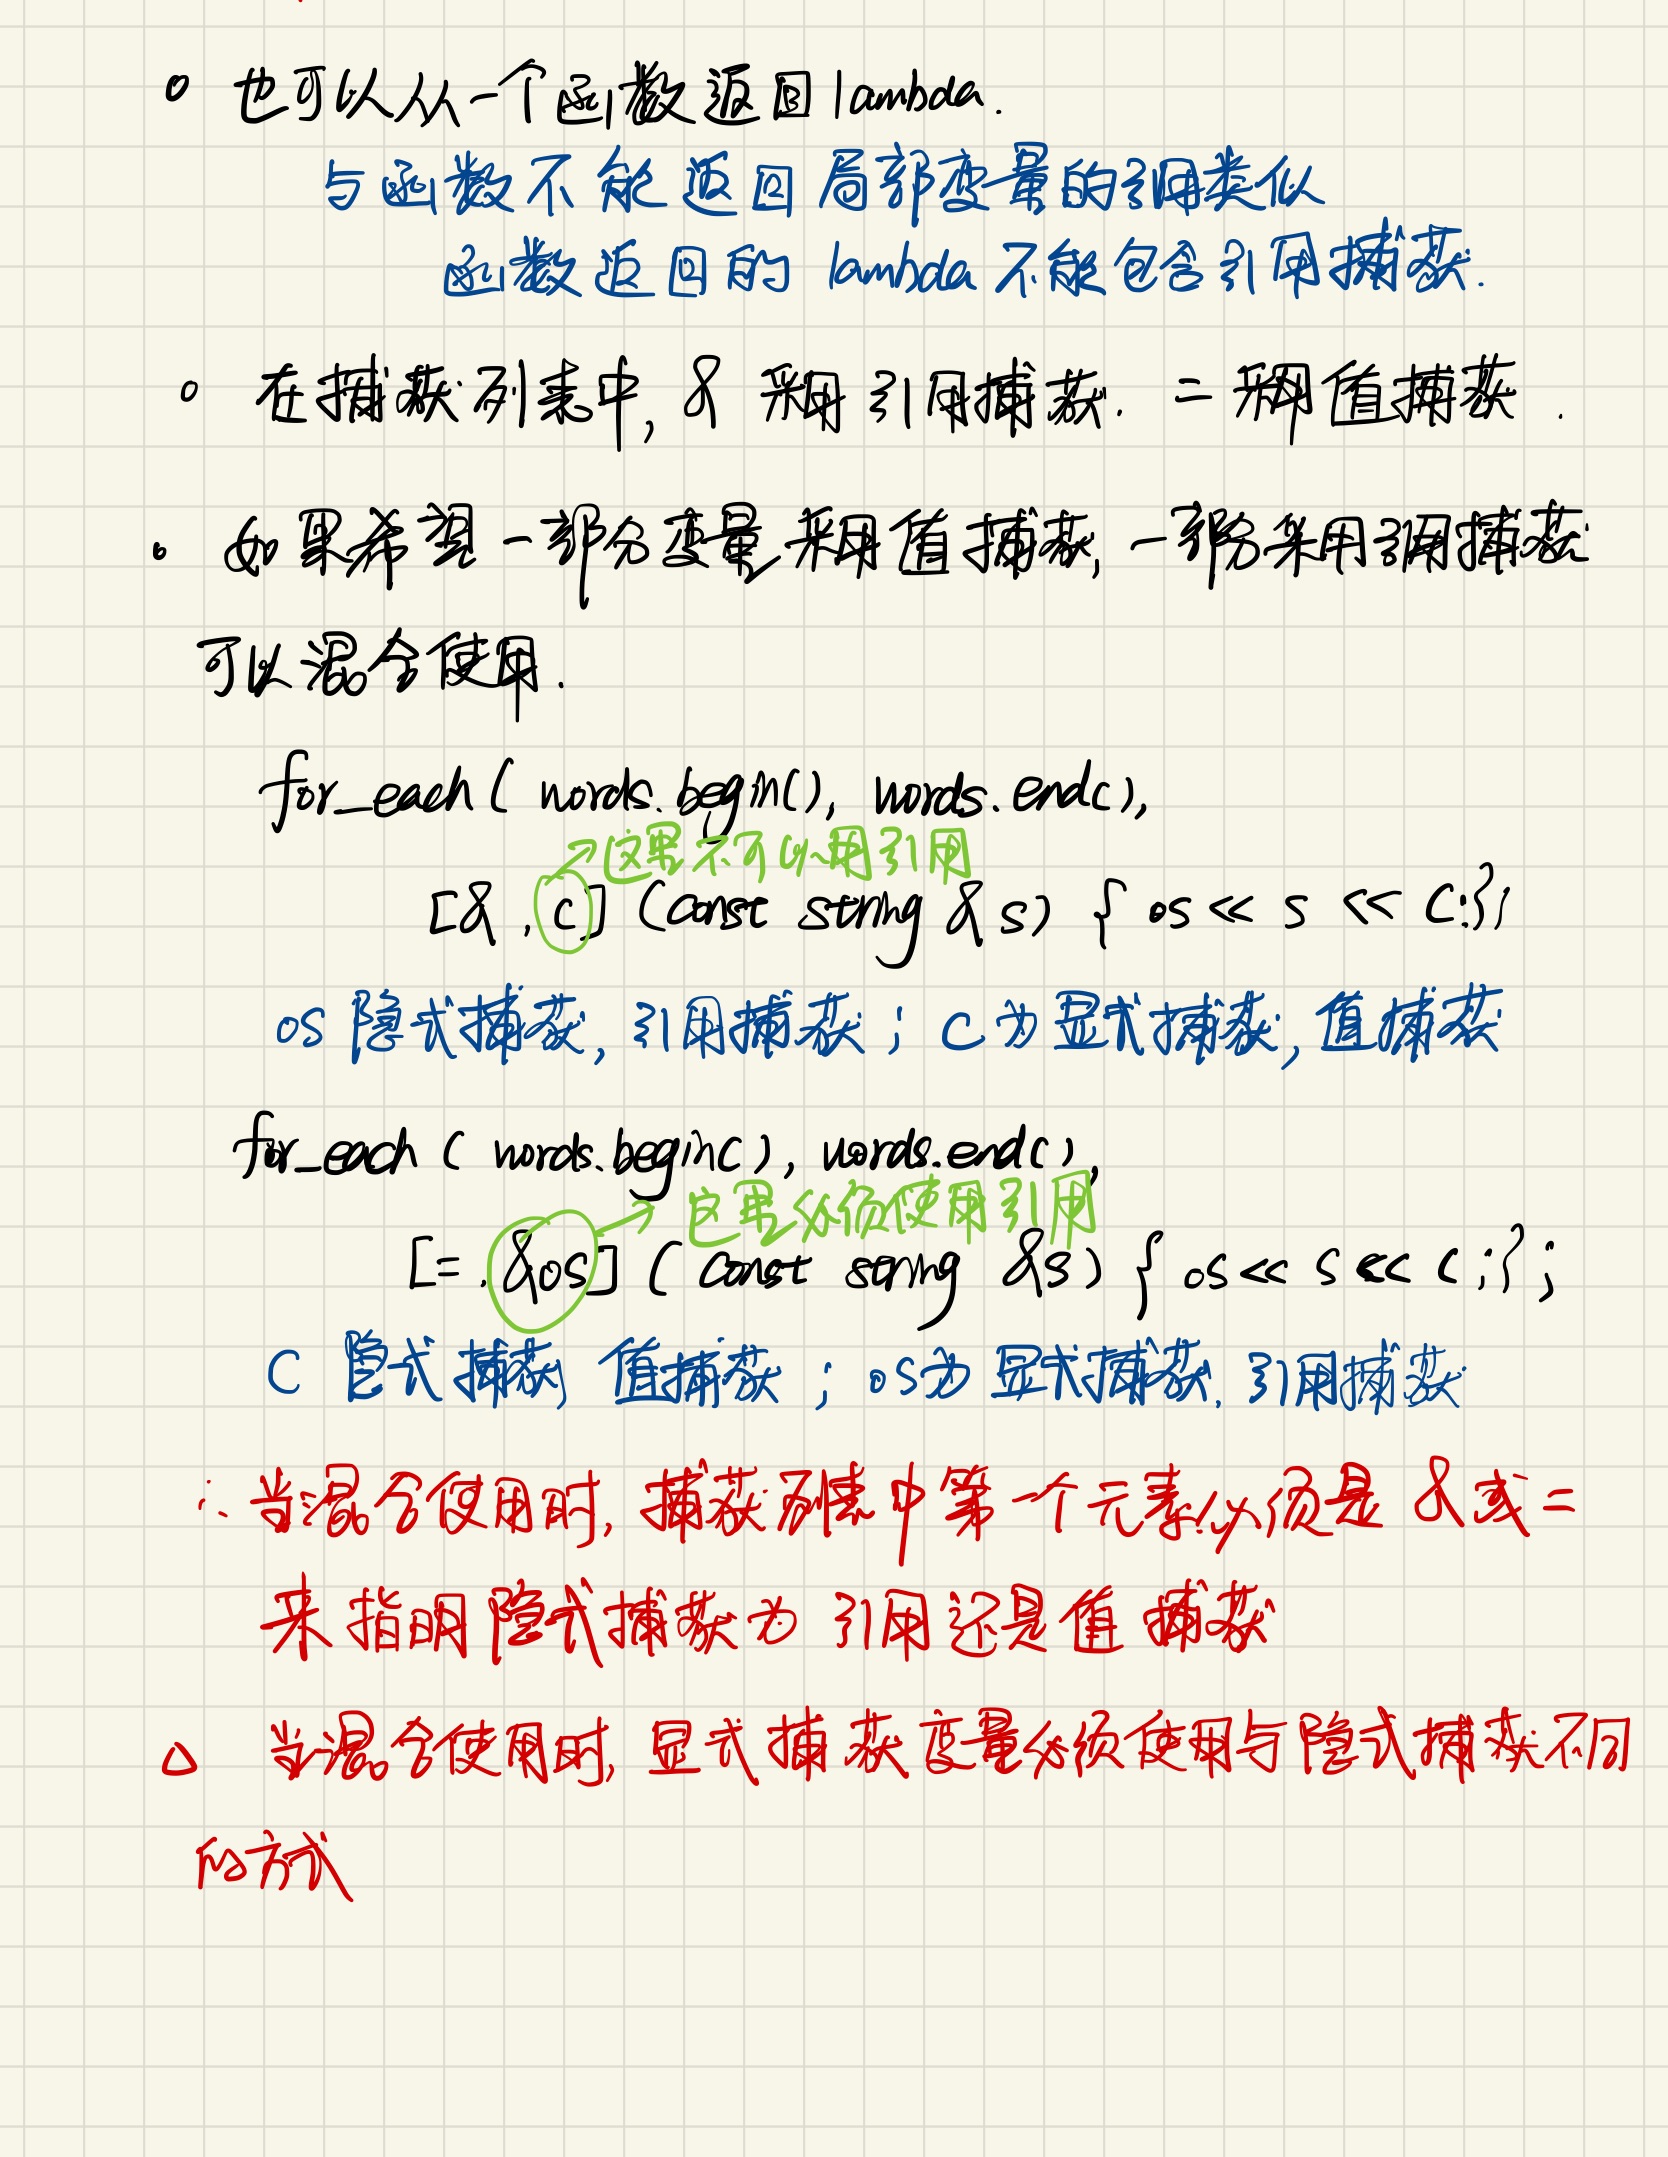 。也可以从一个函数返回lambda.
与函数不能返回局部变量的引用类似
函数返回的 lambda 不能包含引用捕获.
。在捕获列表中, & 采用引用捕获. = 采用值捕获.
。如果希望一部分变量采用值捕获, 一部分采用引用捕获
可以混合使用.
for_each( words.begin(), words.end(),
→这里不可以用引用
[& , c] (const string & s) { os << s << c;});
os 隐式捕获, 引用捕获; c为显式捕获, 值捕获
for_each ( words.begin(), words.end(),
→ 这里必须使用引用
[= , &os] ( const string &s) { os << s << c ;} ;
c 隐式捕获, 值捕获; os为 显式捕获, 引用捕获
∴ 当混合使用时, 捕获列表中第一个元素必须是 & 或 =
来指明隐式捕获为 引用还是值捕获
△ 当混合使用时, 显式捕获变量必须使用与隐式捕获不同
的方式